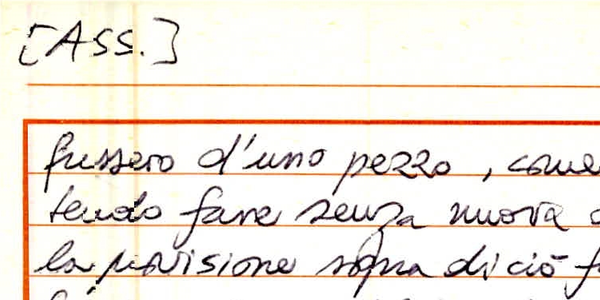 [Ass.]
fussero d'uno pezzo, come
tendo fare senza nuova
la provisione sopra di ciò